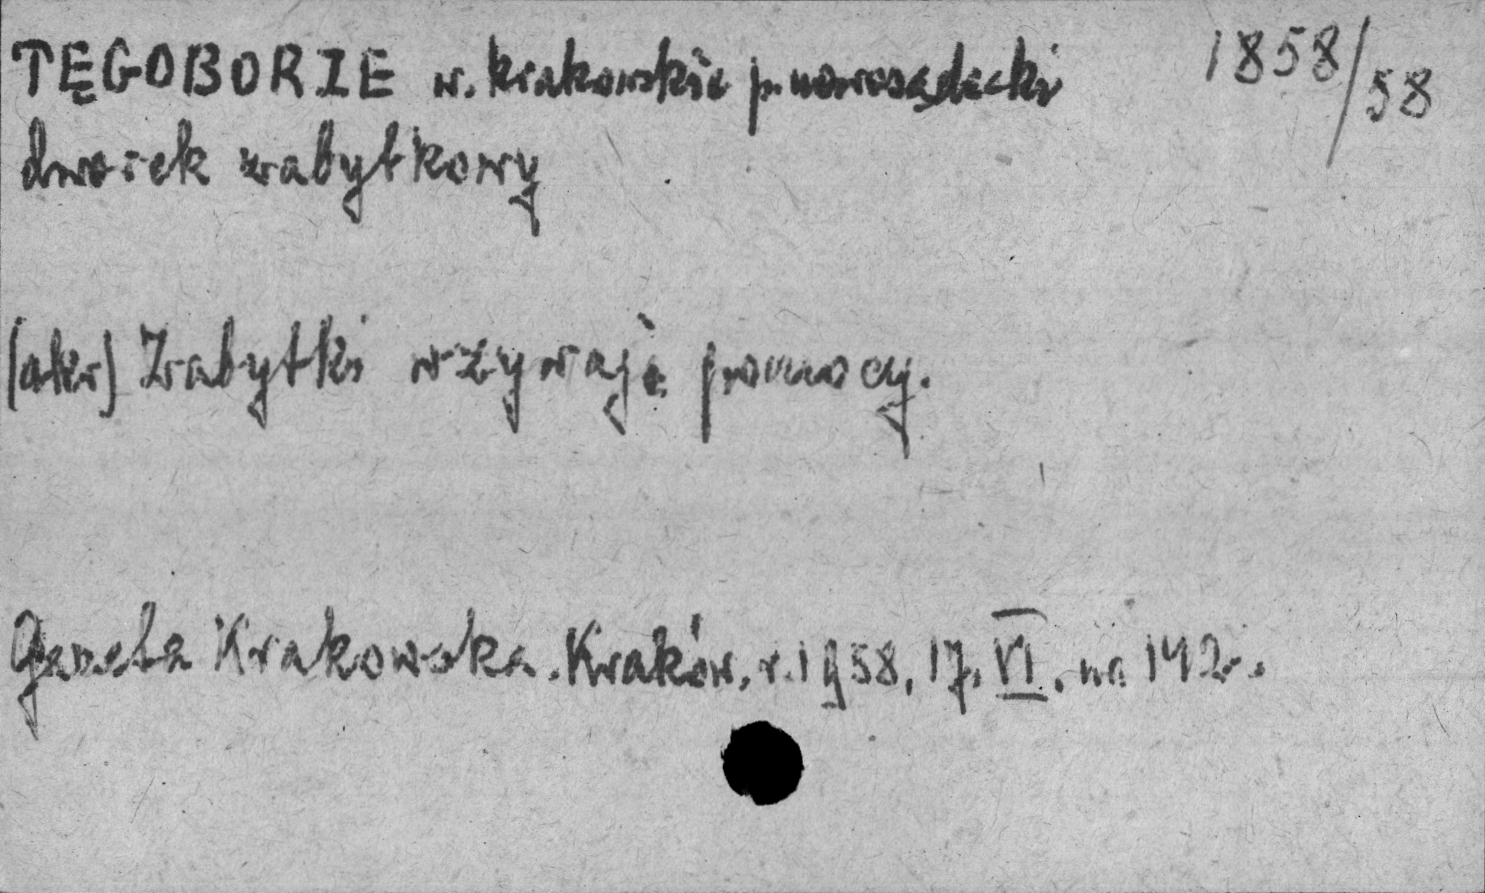 TĘGOBORZE w. krakowskie p. nowosądecki 1858/58
dworek zabytkowy
(aler) Zabytki wzywają pomocy.
Gazeta Krakowska. Kraków, r. 1958, 17. VI. nr 142.